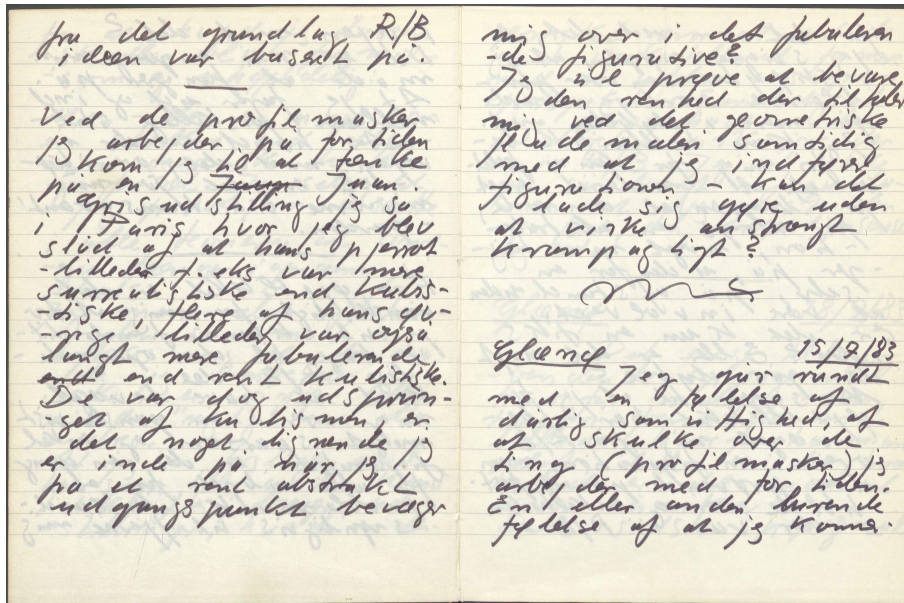 fra det grundlag R/B
ideen var baseret på.
Ved de profilmasker
jeg arbejder på for tiden
kom jeg til at tænke
på en Juan
Gris udstilling jeg så
i Paris hvor jeg blev
slået af at hans pjerrot
-billeder f.eks var mere
surrealistiske end kubis-
-tiske, flere af hans øv-
-rige billeder var også
langt mere fabulerende
end rent kubistiske.
De var dog udsprun-
-get af kubismen, er
det noget lignende jeg
er inde på når jeg
på et rent abstrakt
udgangspunkt bevæger
mig over i det fabuleren
-de figurative?
Jeg vil prøve at bevare
den renhed der tilfalder
mig ved det geometriske
flade maleri samtidig
med at jeg indfører
figurationen - kan det
lade sig gøre uden
at virke anstrengt
krampagtigt?
Glænø 15/7/83
Jeg går rundt
med en følelse af
dårlig samvittighed, af
at skulke over de
ting (profilmasker) jeg
arbejder med for tiden.
En eller anden lurende
følelse af at jeg kommer